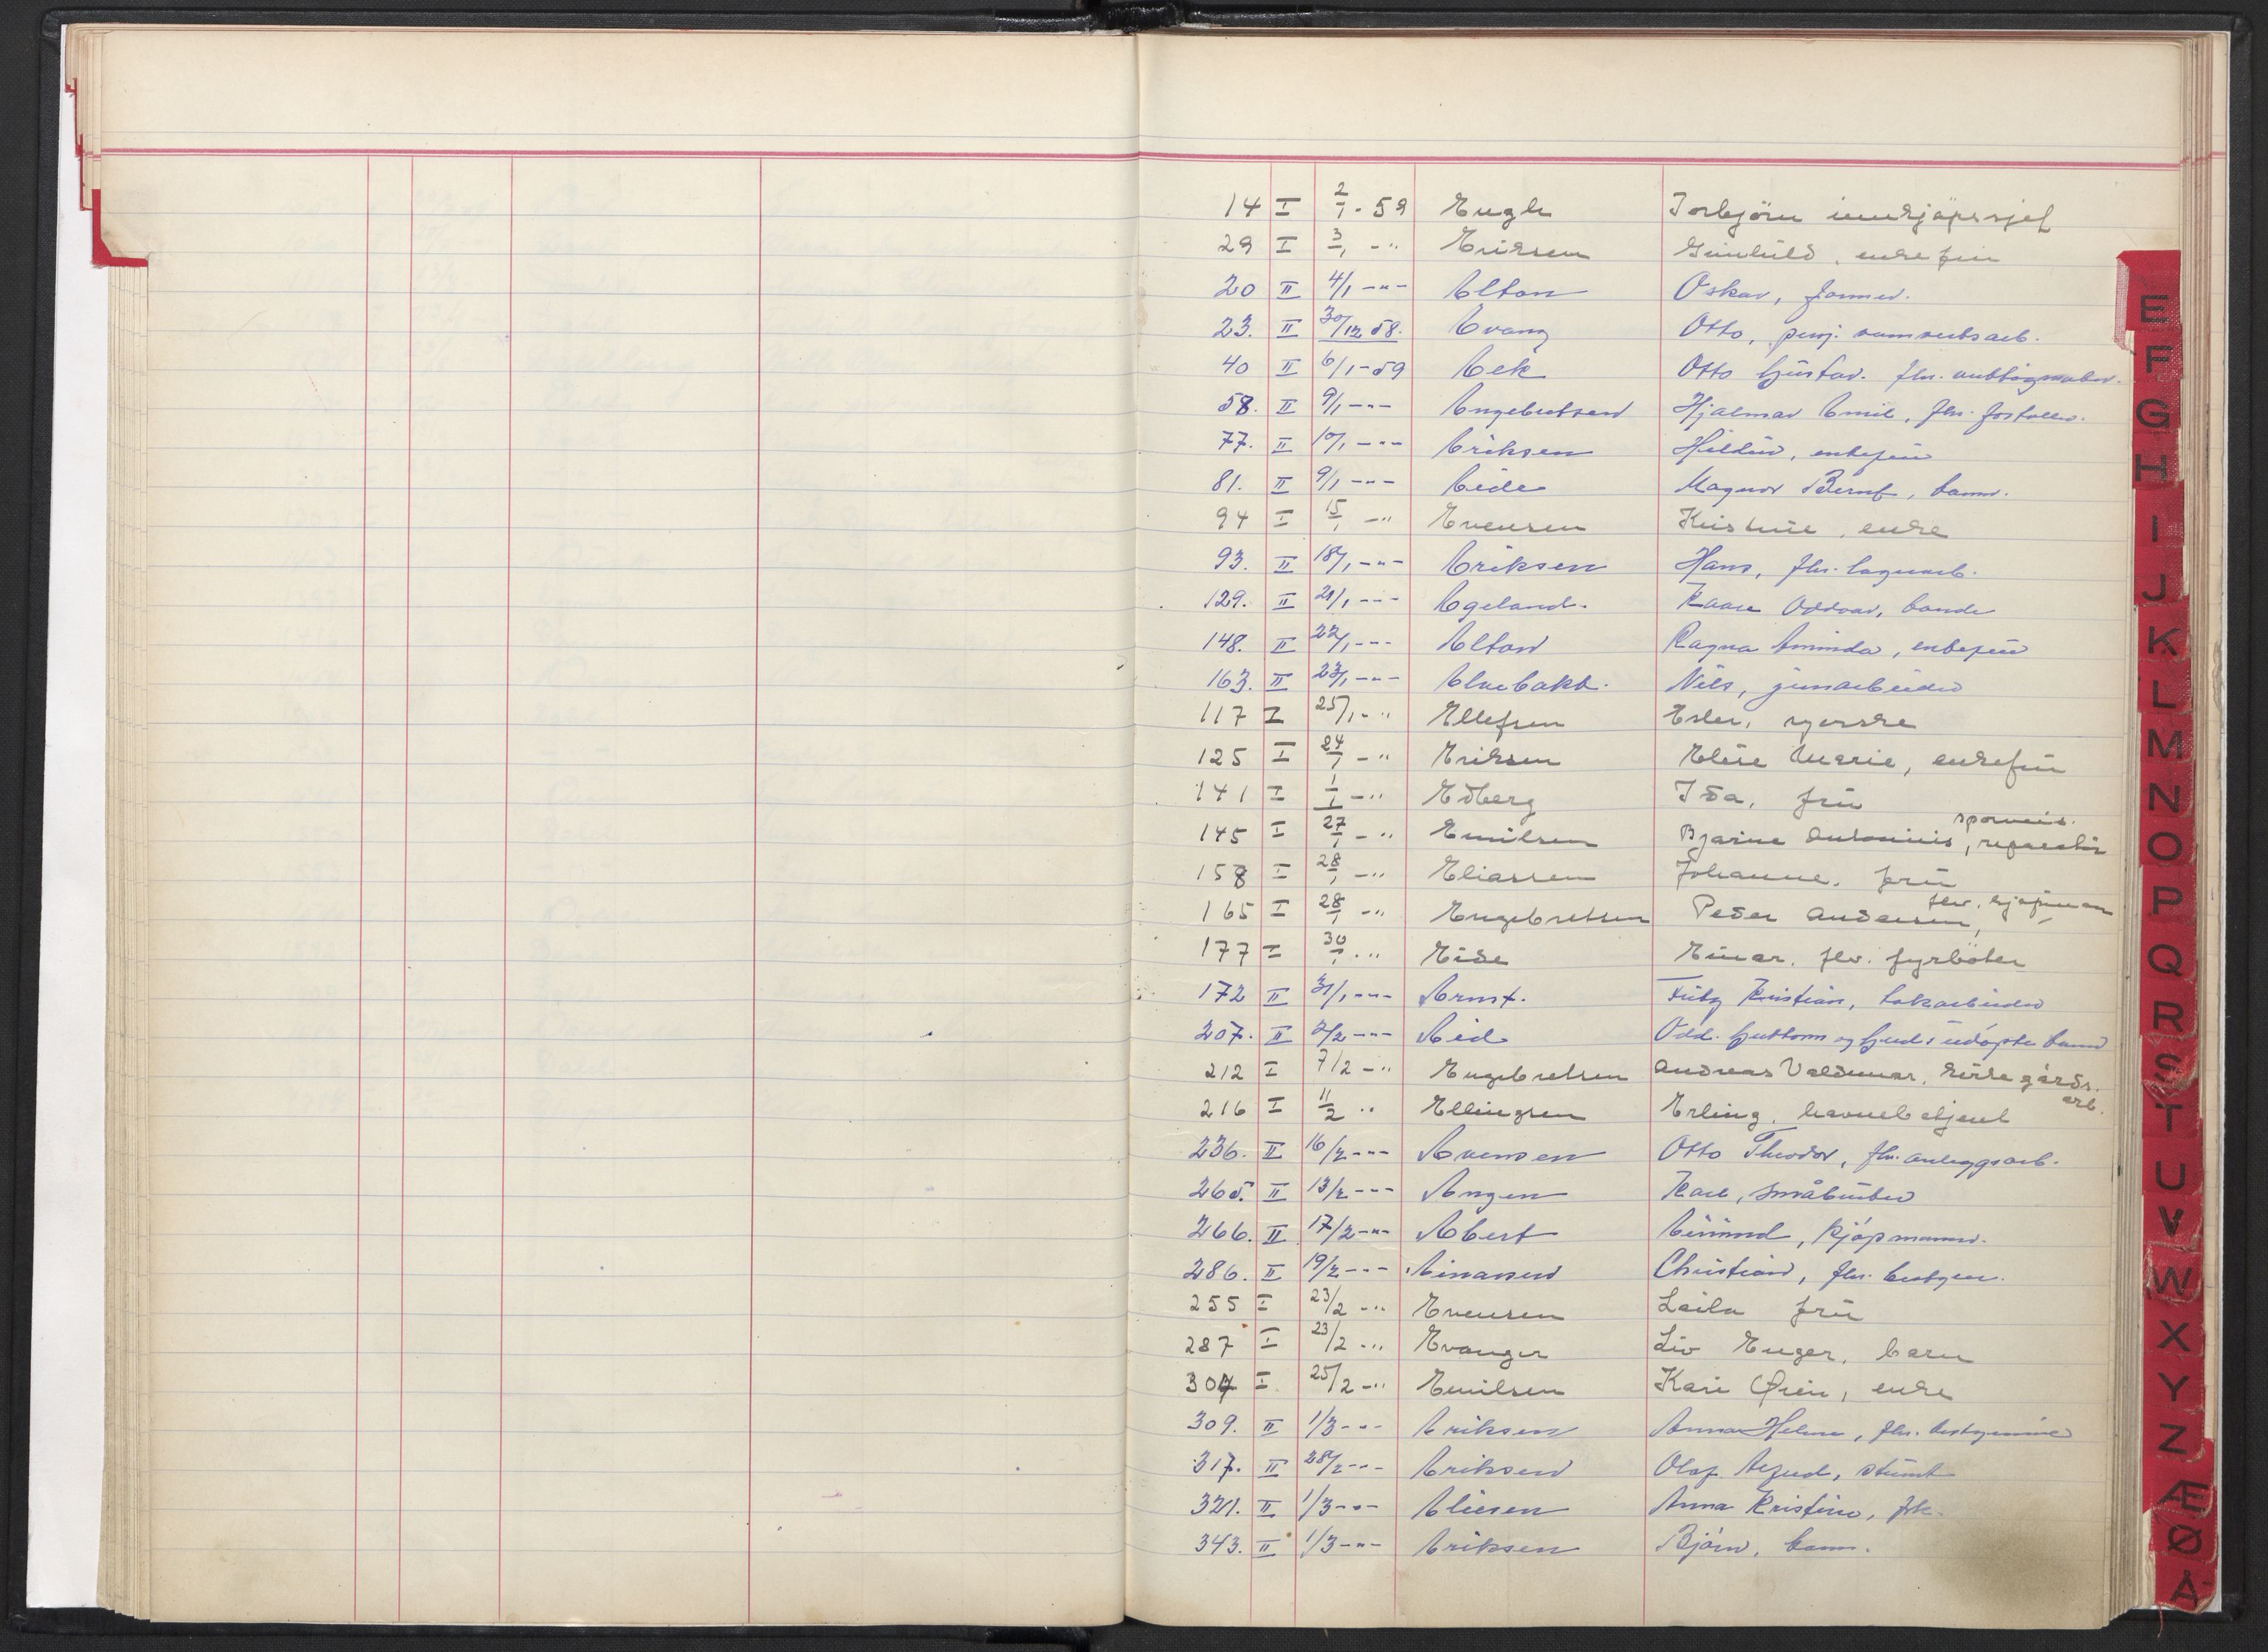 14 I 2/1 - 59 Engh Torbjörn innkjöpssjef
29 I 3/1 - " Eriksen Gunhild, enkefru
20 II 4/1 - " - Elton Oskar,
23. II 30/12 58. Evang Otto, pensj.
40 II 6/1 - 59 Eek Otto Gustav. fhv.
58. II 9/1 - " - Engebretsen Hjalmar Emil, fhv.
77. II 10/1 - " - Eriksen Hildur, enkefru
81. II 9/1 - " - Eide Magnor Bernt, barn.
94 I 15/1 - " Evensen Kristine, enke
93. II 18/1 - " - Eriksen Hans, fhv. lagerarb.
129. II 21/1 - " - Egeland. Kaare Oddvar, bonde
148. II 22/1 - " - Elton Ragna Aminda, enkefru
163. II 23/1 - " - Elvebakk. Nils, jernarbeider
117 I 25/1 - " Ellefsen Ester, syerske
125 I 24/1 - " Eriksen Elise Marie, enkefru
141 I 1/1 - " Edberg Ida, fru
145 I 27/1 - " Emilsen Bjarne Antonius, sporveis. reparatör
158 I 28/1 - " Eliassen Johanne. fru
165 I 28/1 - " Engebretsen Peder Andersen, fhv. kjöpmann
177 I 30/1 - " Eide Einar. fhv. fyrböter
172 II 31/1 - " - Ernst. Kristian,
207. II 2/2 - " - Eid Odd. Guttorm og Gerd's udöpte barn
212 I 7/2 - " Engebretsen Andreas Valdemar, kirkegårds. arb.
216 I 11/2 " Ellingsen Erling, havnebetjent
236. II 16/2 - " - Evensen Otto Theodor, fhv. anleggsarb.
265. II 13/2 - " - Engen Karl, småbruker
266. II 17/2 - " - Ebert Eivind, kjöpmann.
286. II 19/2 - " - Einarsen Christian, fhv. bestyrer.
255 I 23/2 - " Evensen Laila fru
287 I 23/2 - " Evanger Liv Enger, barn
304 I 25/2 - " Emilsen Kari Öien, enke
309. II 1/3 - " - Eriksen Anna Helene, fhv. bestyrerinne
317. II 28/2 - " - Eriksen Olaf
321. II 1/3 - " - Eliesen Anna Kristine, frk.
343. II 1/3 - " - Eriksen Björn, barn.
E
F
G
H
I
J
K
L
M
N
O
P
Q
R
S
T
U
V
W
X
Y
Z
Æ
Ø
Å